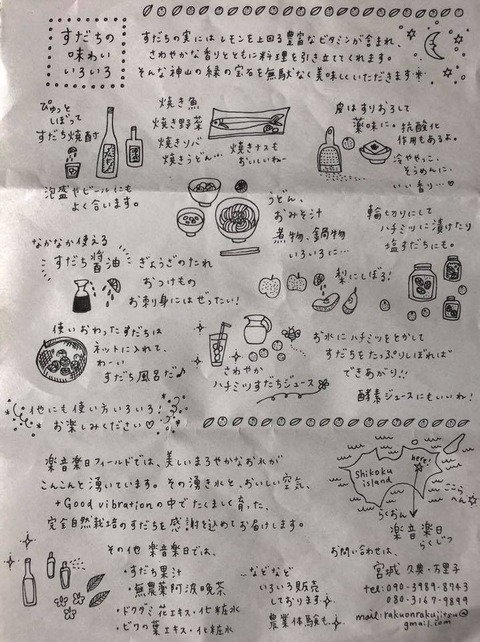 すだちの
味わい
いろいろ
すだちの実にはレモンを上回る豊富なビタミンが含まれ、
さわやかな香りとともに料理を引き立ててくれます。
そんな神山の緑の宝石を無駄なく美味しくいただきます
ぴゅっと
しぼって
すだち焼酎
泡盛やビールにも
よく合います。
焼き魚
焼き野菜
焼きソバ
焼きうどん…
焼きナスも
おいしいねー
皮はすりおろして
薬味に。抗酸化
作用もあるよ。
冷ややっこ、
そうめんに、
いい香り…♡
うどん、
おみそ汁
煮物、鍋物
いろいろに…
輪切りにして
ハチミツに漬けたり
塩すだちにも。
なかなか使える
すだち醤油
ぎょうざのたれ
おつけもの
お刺身にはぜったい!
梨にしぼる!
使いおわったすだちは
ネットに入れて、
わーい
すだち風呂だ♪
さわやか
ハチミツすだちジュース
お水にハチミツをとかして
すだちをたっぷりしぼれば
できあがり!!
酵素ジュースにもいいね!
他にも使い方いろいろ!
お楽しみください♡
楽音楽日フィールドでは、美しいまろやかなお水が
こんこんと湧いています。その湧き水と、おいしい空気、
+Good vibrationの中でたくましく育った、
完全自然栽培のすだちを感謝を込めてお届けします。
Shikoku
island
here!
ここら
へん
らくおん
楽音楽日
らくじつ
その他 楽音楽日では、
・すだち果汁
・無農薬阿波晩茶
・ドクダミ花エキス・化粧水
・ビワの葉エキス・化粧水
…などなど
いろいろ販売
しております。
農業体験も。
お問い合わせは、
宮城 久奥・万里子
tel:090-3989-8743
080-3167-9899
mail:rakuonrakujitsu@
gmail.com